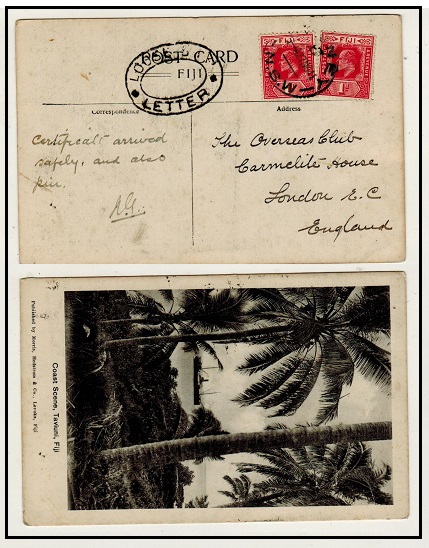 POST CARD
LOOSE
FIJI
LETTER
FIJI
FIJI
Correspondence
Address
certificate arrived
safely, and also
pin.
The Overseas Club
Carmelite House
London E.C
England
Coast Scene, Taviuni, Fiji
Published by Morris, Hedstrom & Co., Levuka, Fiji